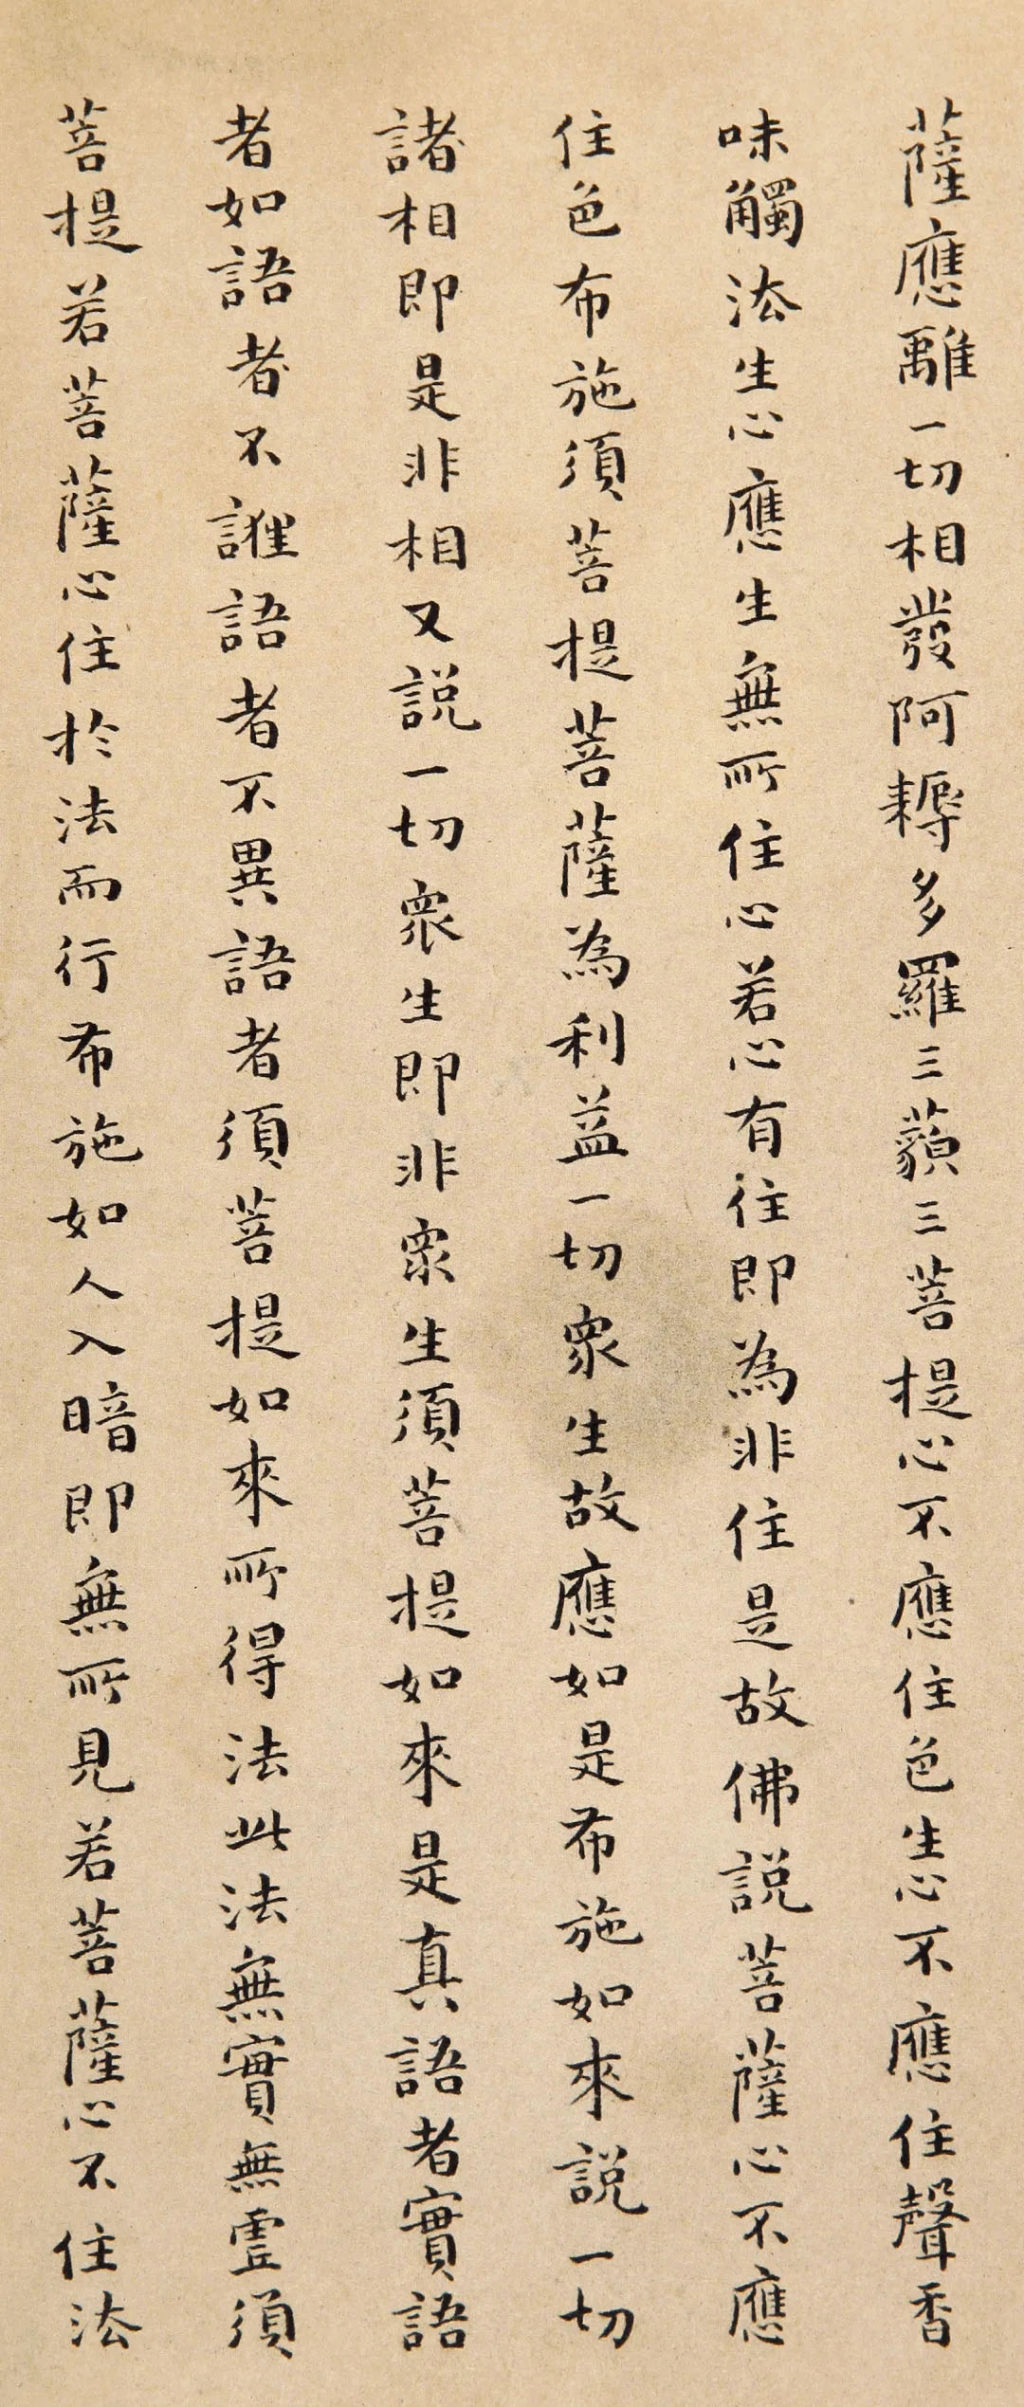 薩應離一切相發阿耨多羅三藐三菩提心不應住色生心不應住聲香
味觸法生心應生無所住心若心有住即為非住是故佛說菩薩心不應
住色布施須菩提菩薩為利益一切眾生故應如是布施如來說一切
諸相即是非相又說一切眾生即非眾生須菩提如來是真語者實語
者如語者不誑語者不異語者須菩提如來所得法此法無實無虛須
菩提若菩薩心住於法而行布施如人入暗即無所見若菩薩心不住法